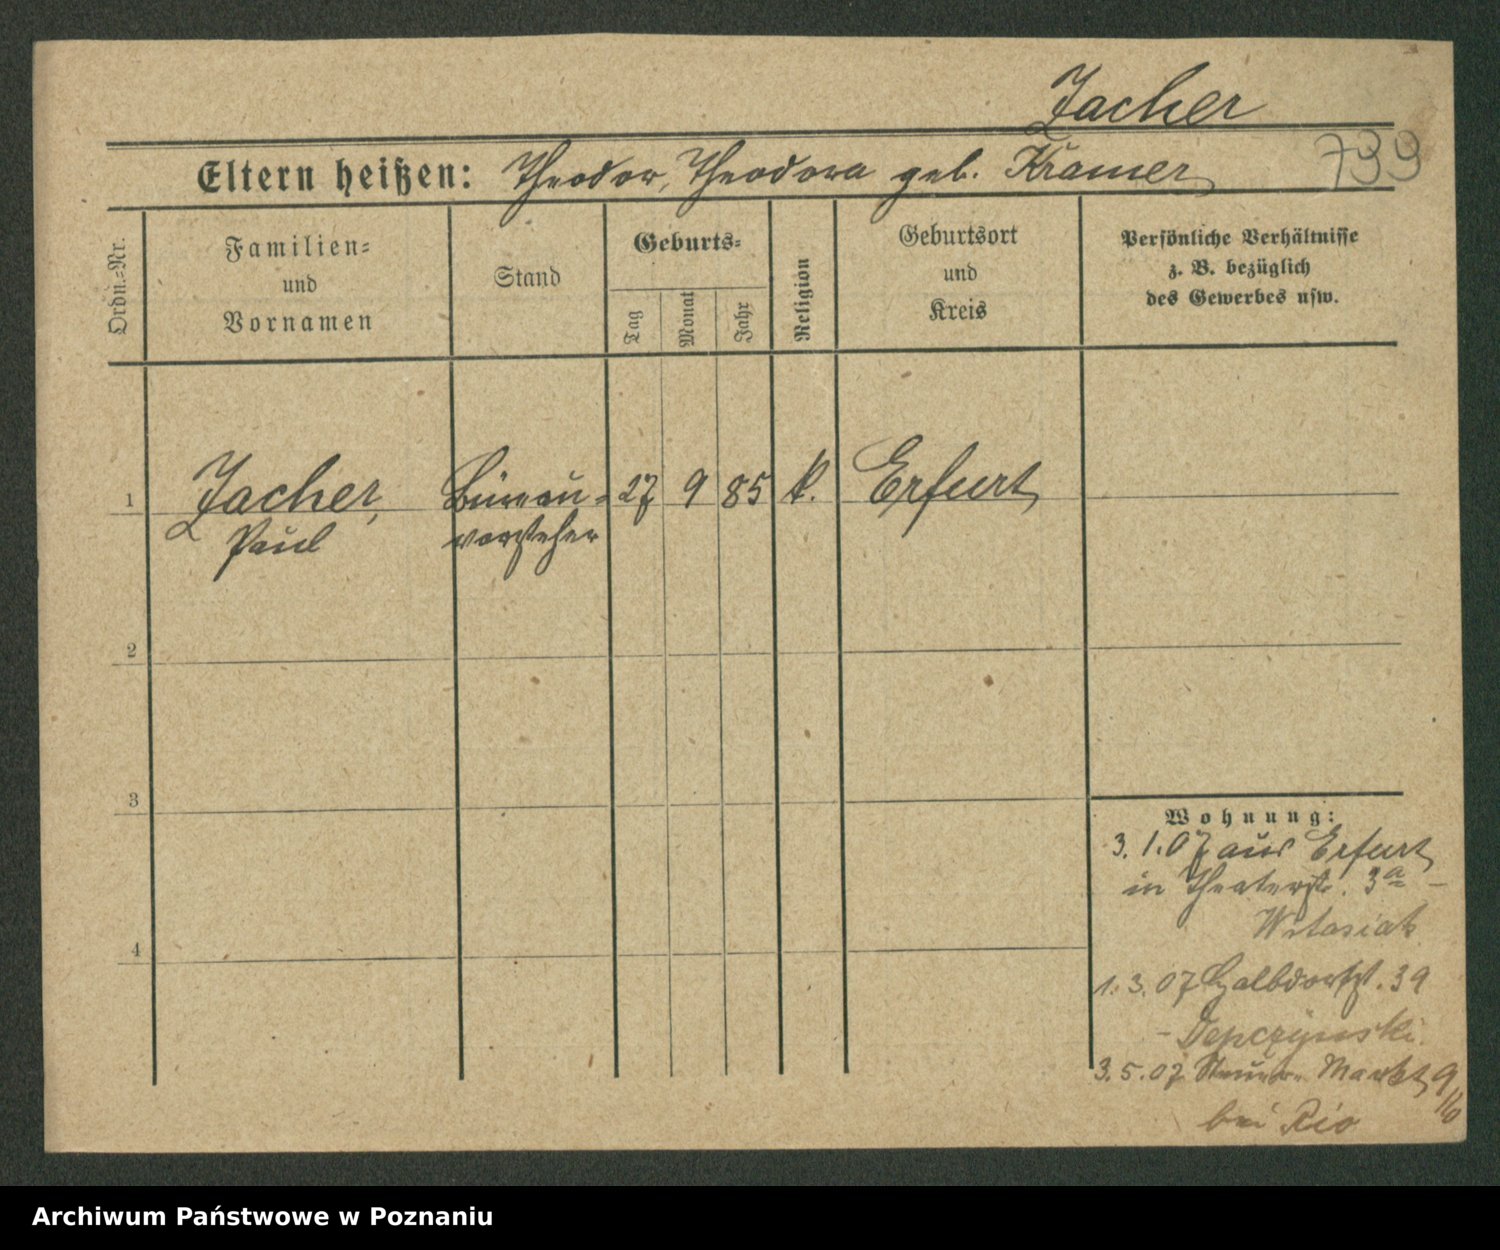 Jacher
739
Eltern heißen: Theodor, Theodora geb. Kramer
Ordn.-Nr.
Familien-
und
Vornamen
Stand
Geburts-
Tag
Monat
Jahr
Religion
Geburtsort
und
Kreis
Persönliche Verhältnisse
z. B. bezüglich
des Gewerbes usw.
1
Jacher,
Paul
Büreau-
vorsteher
27
9
85
k.
Erfurt
2
3
4
Wohnung:
3.1.07 aus Erfurt
in Theaterstr. 3a –
Witasiak
1.3.07 Halbdorfst. 39
– Depczynski.
3.5.07 Markt 9/10
bei Rio
Archiwum Państwowe w Poznaniu